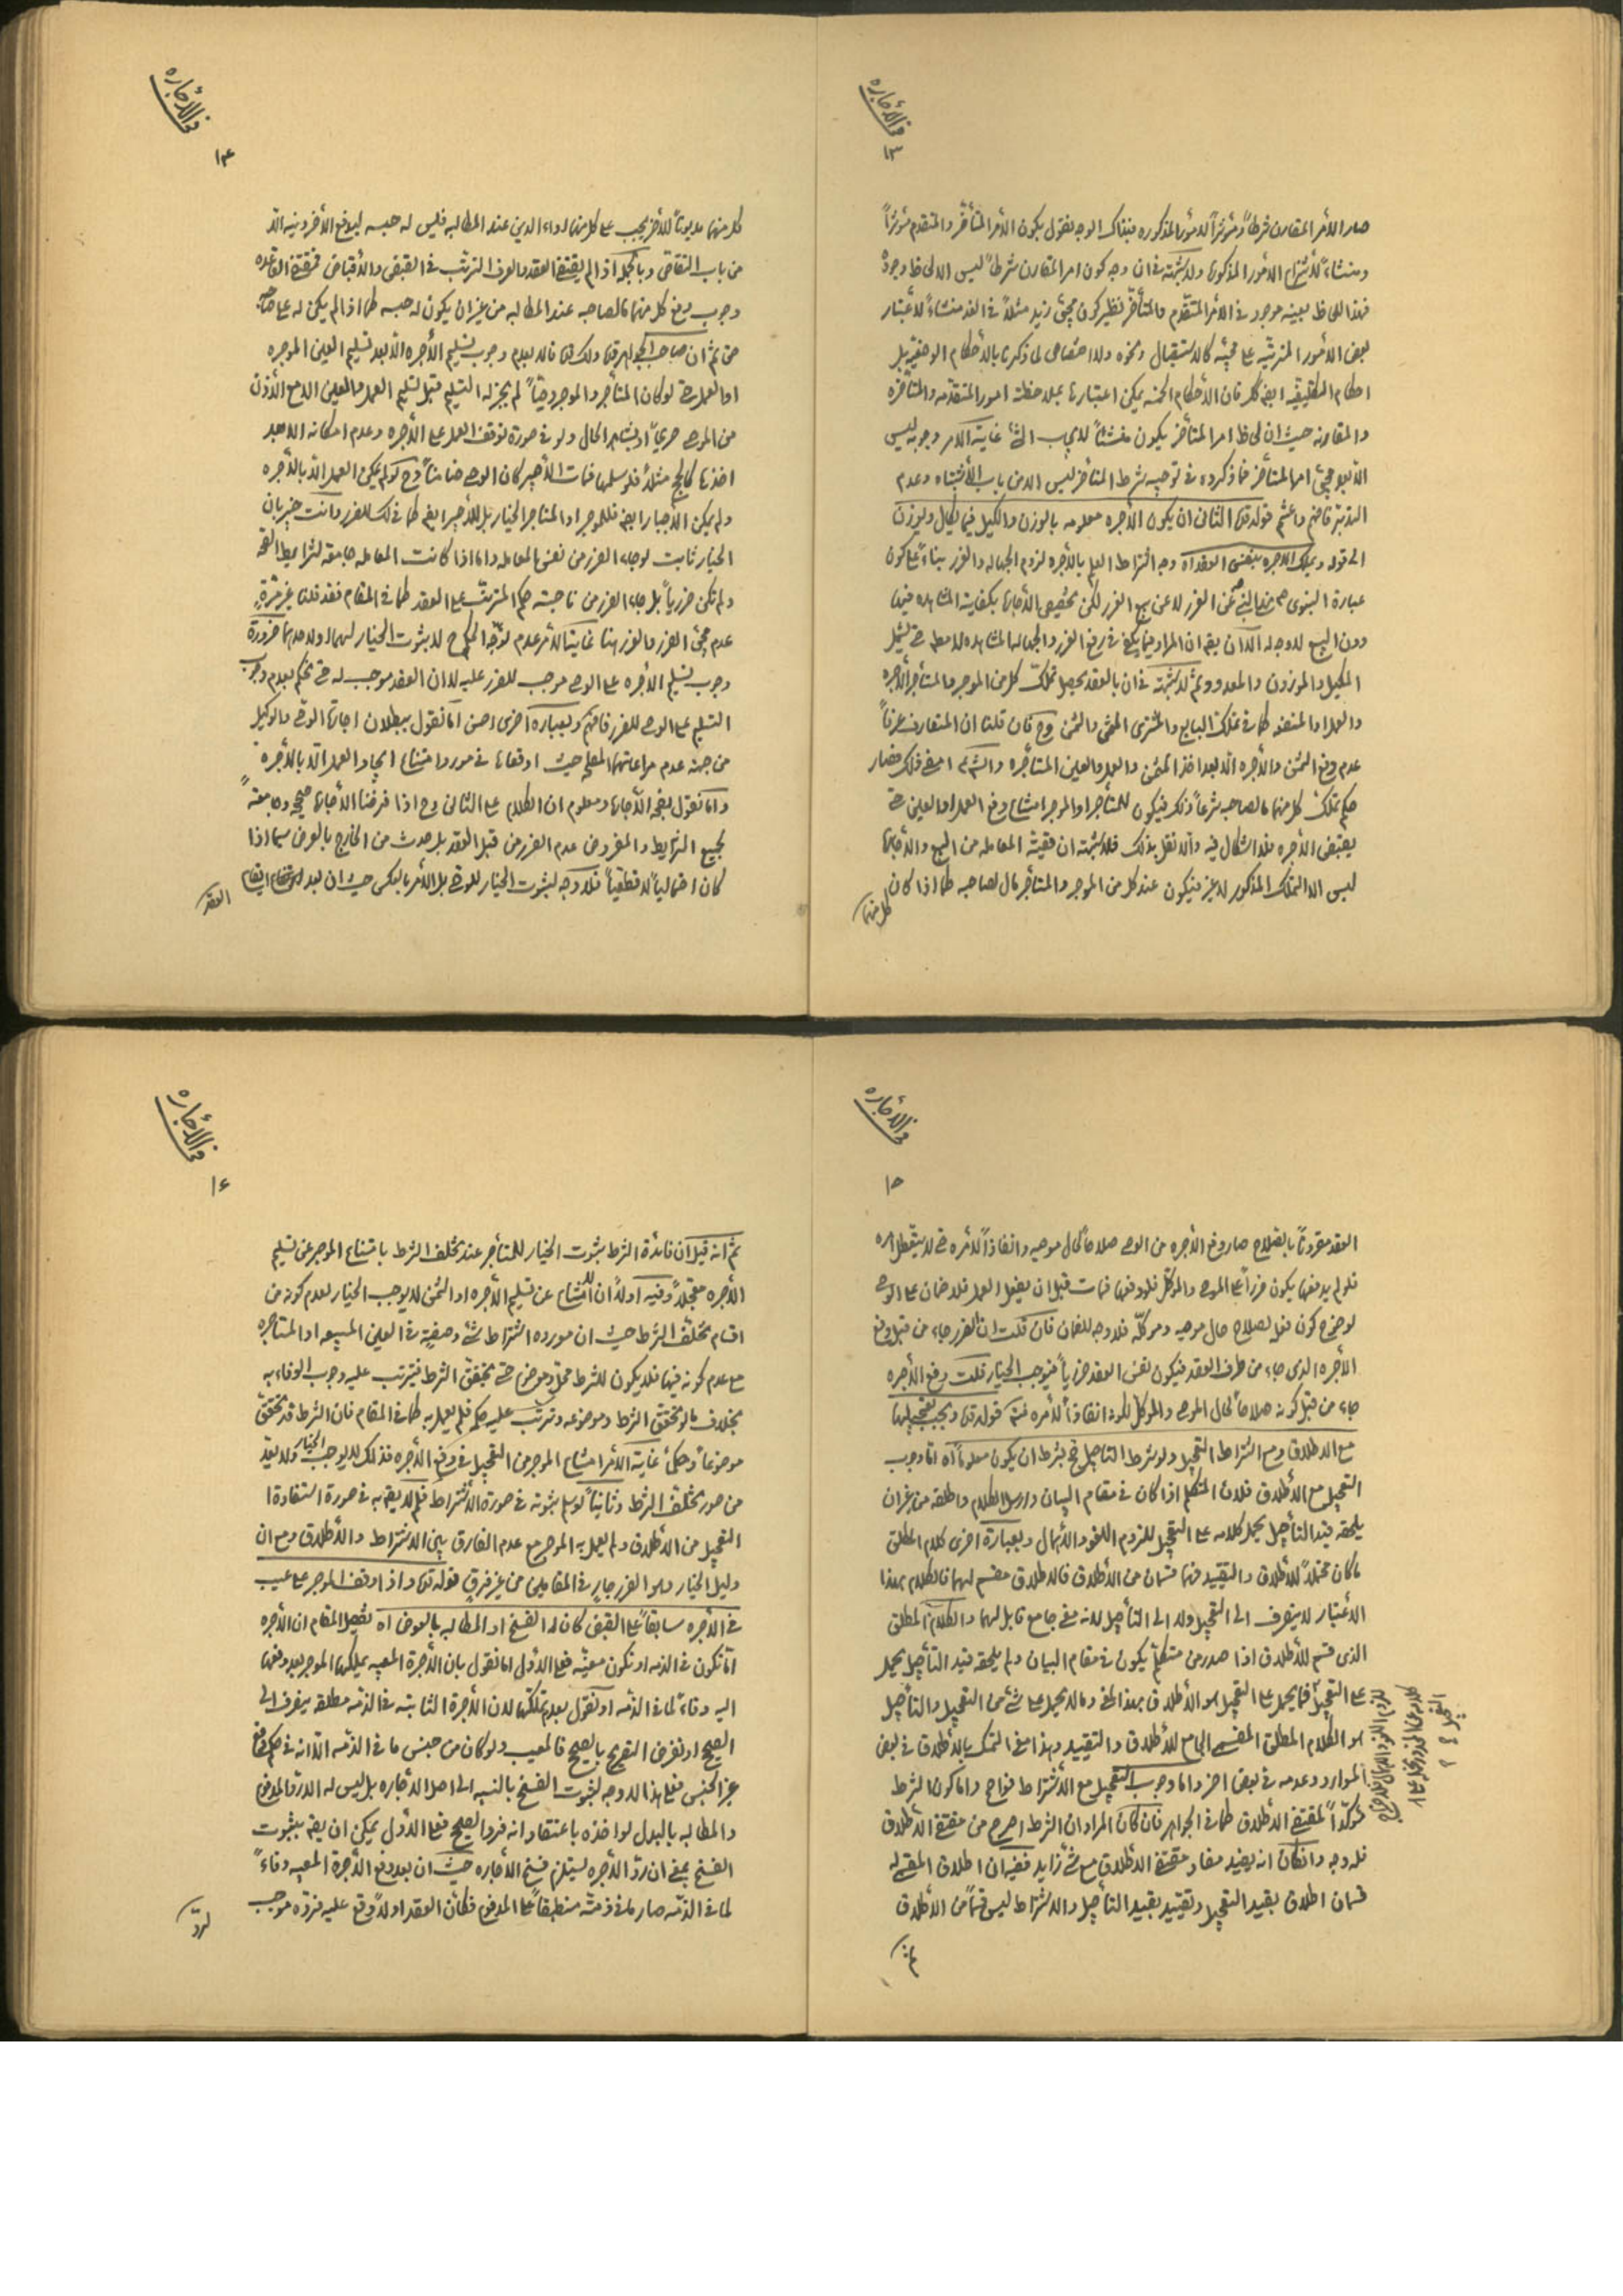 فى الأجاره
١٣
صار الأمر المقارن شرطاً ومؤثراً لأمور المذكوره بنذاك الوجه نقول بكون الأمر المتأخر والمتقدم مؤثراً
ومنشاء لأنتزاع الأمور المذكورة ولا شبهة فى ان وجه كون امر المقارن شرطاً ليس الا لحاظ وجوده
فهذا اللحاظ بعينه موجود فى الأمر المتقدم والمتأخر نظير كون مجئ زيد مثلاً فى الغد منشاء لأعتبار
بعض الأمور المترتبه على مجيئه كالاستقبال ونحوه ولا اختصاص لما ذكرنا بالأحكام الوضعيه بل
احكام التكليفيه ايضا كك فان الأحكام الخمسه يمكن اعتبارها بملاحظة امور المتقدمه والمتأخره
والمقارنه حيث ان لحاظ امر المتأخر يكون منشئاً لايجاب الشئ غاية الامر وجوبه ليس
الا قبل مجئ امر المتأخر فما ذكروه فى توجيه شرط المتأخر ليس الا من باب الأشتباه وعدم
التدبر فافهم واغتنم قوله قده الثانى ان يكون الأجره معلومه بالوزن والكيل فيما يكال ويوزن
الى قوله ويملك الاجره بنفس العقد آه وجه اشتراط العلم بالأجره لزوم الجهاله والغرر بناء على كون
عبارة النبوى ص نهى النبى عن الغرر لا عن بيع الغرر لكن تخصيص الأجاره بكفاية المشاهده فيها
دون البيع لا وجه له الا ان يقه ان المراد مما يكفى فى رفع الغرر والجهاله المشاهده لا مطلقا حتى يشمل
المكيل والموزون والمعدود ثم لا شبهة فى ان بالعقد يحصل تملك كل من الموجر والمستأجر الأجره
والعمل او المنفعه كما فى تملك البايع والمشترى المثمن والثمن وح فان قلنا ان المتعارف عرفاً
عدم دفع الثمن والأجره الا بعد اخذ المثمن والعمل والعين المستأجره والشرع امضى ذلك فصار
حكم تملك كل منهما مال صاحبه شرعاً ذلك فيكون للمستأجر او الموجر امتناع دفع العمل او العين حتى
يقبض الأجره فلا اشكال فيه والا نقل بذلك فلا شبهة ان قضية المعامله من البيع والأجاره
ليس الا التملك المذكور لا غير فيكون عند كل من الموجر والمستأجر مال لصاحبه كما اذا كان
كل منهما

فى الأجاره
١٤
كل منهما مديوناً للأخر يجب على كل منهما اداء الدين عند المطالبه فليس له حبسه ليدفع الأخر دينه الا
من باب التقاص وبالجمله اذا لم يقتضى العقد والعرف الترتب فى القبض والأقباض فمقتضى القاعده
وجوب دفع كل منهما مال صاحبه عند المطالبه من غير ان يكون له حبسه كما اذا لم يكن له على صاحبه
حق ثم ان صاحب الجواهر قده وكك قده قالا بعدم وجوب تسليم الأجره الا بعد تسليم العين الموجره
او العمل حتى لو كان المستأجر والموجر وصياً لم يجز له التسليم قبل تسليم العمل والعين الا مع الأذن
من الموصى صريحاً او بشاهد الحال ولو فى صورة توقف العمل على الأجره وعدم امكانه الا بعد
اخذها كالحج مثلاً فلو سلمها فمات الأجير كان الوصى ضامناً وح لو لم يمكن العمل الا بالأجره
ولم يمكن الأجبار ايضا فللموجر او المستأجر الخيار بل للأجير ايضا كما فى لك للغرر وانت خبير بان
الخيار ثابت لو جاء الغرر من نفس المعامله واما اذا كانت المعامله جامعة لشرايط الصحة
ولم تكن ضررياً بل جاء الضرر من ناحية حكم المترتب على العقد كما فى المقام فقد قلنا غير مرة
عدم مجئ الضرر والغرر هنا غاية الأمر عدم
وجوب تسليم الأجره على الوصى موجب للضرر عليه لا ان العقد موجب له حتى يحكم بعدم وجوب
التسليم على الوصى للضرر فافهم وبعبارة اخرى احسن اما نقول ببطلان اجارة الوصى والوكيل
من جهة عدم مراعاتهما المصلحه حيث اوقعاها فى مورد امتناع ايجاد العمل الا بالأجره
واما نقول بصحة الأجاره ومعلوم ان الكلام على الثانى وح اذا فرضنا الأجاره صحيحه وجامعة
لجميع الشرايط والمفروض عدم الضرر من قبل العقد بل حدث من الخارج بالعرض سيما اذا
كان احتمالياً لا قطعياً فلا وجه لثبوت الخيار للوصى بل الأمر بالعكس حيث ان بعد ايقاع
العقد

فى الأجاره
١٥
العقد مقروناً بالصلاح صار دفع الأجره من الوصى صلاحاً لحال موصيه وانفاذاً لأمره حتى لا يتعطل امره
فلو لم يدفعها يكون ضرراً على الموصى والموكل فلو دفعها فمات قبل ان يفعل العمل فلا ضمان على الوصى
لوضوح كون فعله لصلاح حال موصيه وموكله فلا وجه للضمان فان قلت ان الضرر جاء من قبل دفع
الأجره الذى جاء من طرف العقد فيكون نفس العقد ضررياً فيوجب الخيار قلت دفع الأجره
جاء من قبل كونه صلاحاً لحال الموصى والموكل لكونه انفاذاً لأمره فتدبر قوله قده ويجب تعجيلها
مع الاطلاق ومع اشتراط التعجيل ولو شرط التاجيل صح بشرط ان يكون معلوماً آه اما وجوب
التعجيل مع الأطلاق فلان المتكلم اذا كان فى مقام البيان وارسل الكلام واطلقه من غير ان
يلحقه قيد التأجيل يحمل كلامه على التعجيل للزوم اللغو والأهمال وبعبارة اخرى كلام المطلق
ما كان محتملاً للأطلاق والتقييد فهما قسمان من الأطلاق فالاطلاق مقسم لهما فالكلام بهذا
الأعتبار لا ينصرف الى التعجيل ولا الى التأجيل لانه معنى جامع قابل لهما والكلام المطلق
الذى قسم للأطلاق اذا صدر من متكلم يكون فى مقام البيان ولم يلحقه قيد التأجيل يحمل
على التعجيل فما يحمل على التعجيل هو الأطلاق بهذا المعنى وما لا يحمل على شئ من التعجيل والتأجيل
هو الكلام المطلق المقسمى الجامع للأطلاق والتقييد وهذا معنى التمسك بالأطلاق فى بعض
الموارد وعدمه فى بعض اخر واما وجوب التعجيل مع الأشتراط فواضح واما كون الشرط
مؤكداً لمقتضى الاطلاق كما فى الجواهر فان كان المراد ان الشرط اصرح من مقتضى الاطلاق
فله وجه وان كان انه يفيد مفاد مقتضى الاطلاق مع شئ زايد ففيه ان اطلاق المقسمى له
قسمان اطلاق بقيد التعجيل وتقييد بقيد التأجيل والاشتراط ليس قسماً من الأطلاق

فى الأجاره
١٦
ثم انه قيل ان فائدة الشرط ثبوت الخيار للمستأجر عند تخلف الشرط بامتناع الموجر عن تسليم
الأجره معجلاً وفيه اولاً ان الامتناع عن تسليم الأجره او الثمن لا يوجب الخيار لعدم كونه من
اقسام تخلف الشرط حيث ان مورده اشتراط شئ وصفية فى العين المبيعه او المستأجره
مع عدم كونه فيها فلا يكون للشرط محل وموضوع حتى يتحقق الشرط فيترتب عليه وجوب الوفاء به
بخلاف ما لو تحقق الشرط وموضوعه وترتب عليه حكم فلم يعمل به كما فى المقام فان الشرط قد تحقق
موضوعاً وحكماً غاية الأمر امتناع الموجر من التعجيل فى دفع الأجره فذلك لا يوجب الخيار ولا يعد
من صور تخلف الشرط وثانياً لو سلم ثبوته فى صورة الأشتراط فلم لا يقه به فى صورة استفادة
التعجيل من الأطلاق ولم يعمل به الموجر مع عدم الفارق بين الاشتراط والأطلاق ومع ان
دليل الخيار وهو الضرر جار فى المقامين من غير فرق قوله قده واذا وقف الموجر على عيب
فى الأجره سابقاً على القبض كان له الفسخ او المطالبه بالعوض آه تفصيل المقام ان الأجره
اما تكون فى الذمه او تكون معينه فعلى الأول اما نقول بان الأجرة المعيبه يملكها الموجر بعد دفعها
اليه وفاء لما فى الذمه او نقول بعدم تملكها لان الأجرة الثابته فى الذمه مطلقه ينصرف الى
الصحيح او نفرض التصريح بالصحيح فالمعيب ولو كان من جنس ما فى الذمه الا انه فى حكم دفع
غير الجنس فعلى هذا لا وجه لثبوت الفسخ بالنسبه الى اصل الأجاره بل ليس له الا رد المدفوع
والمطالبه بالبدل لو اخذه باعتقاد انه فرد الصحيح فعلى الأول يمكن ان يقه بثبوت
الفسخ بمعنى ان رد الأجره يستلزم فسخ الأجاره حيث ان بعد دفع الأجرة المعيبه وفاء
لما فى الذمه صار ما فى ذمته منطبقاً على المدفوع فكأن العقد اولاً وقع عليه فرده موجب
لرد